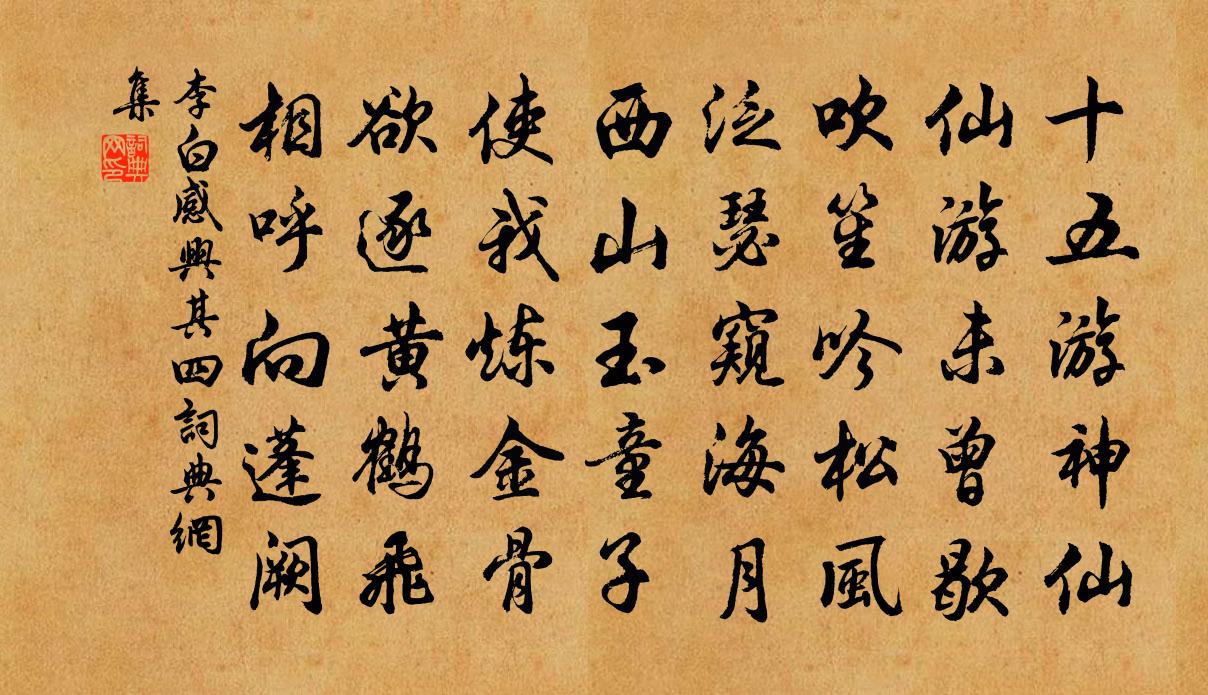 十五游神仙
仙游未曾歇
吹笙吟松風
泛瑟窺海月
西山玉童子
使我炼金骨
欲逐黄鹤飛
相呼向蓬阙
李白感興其四詞典網
集
詞典
网印